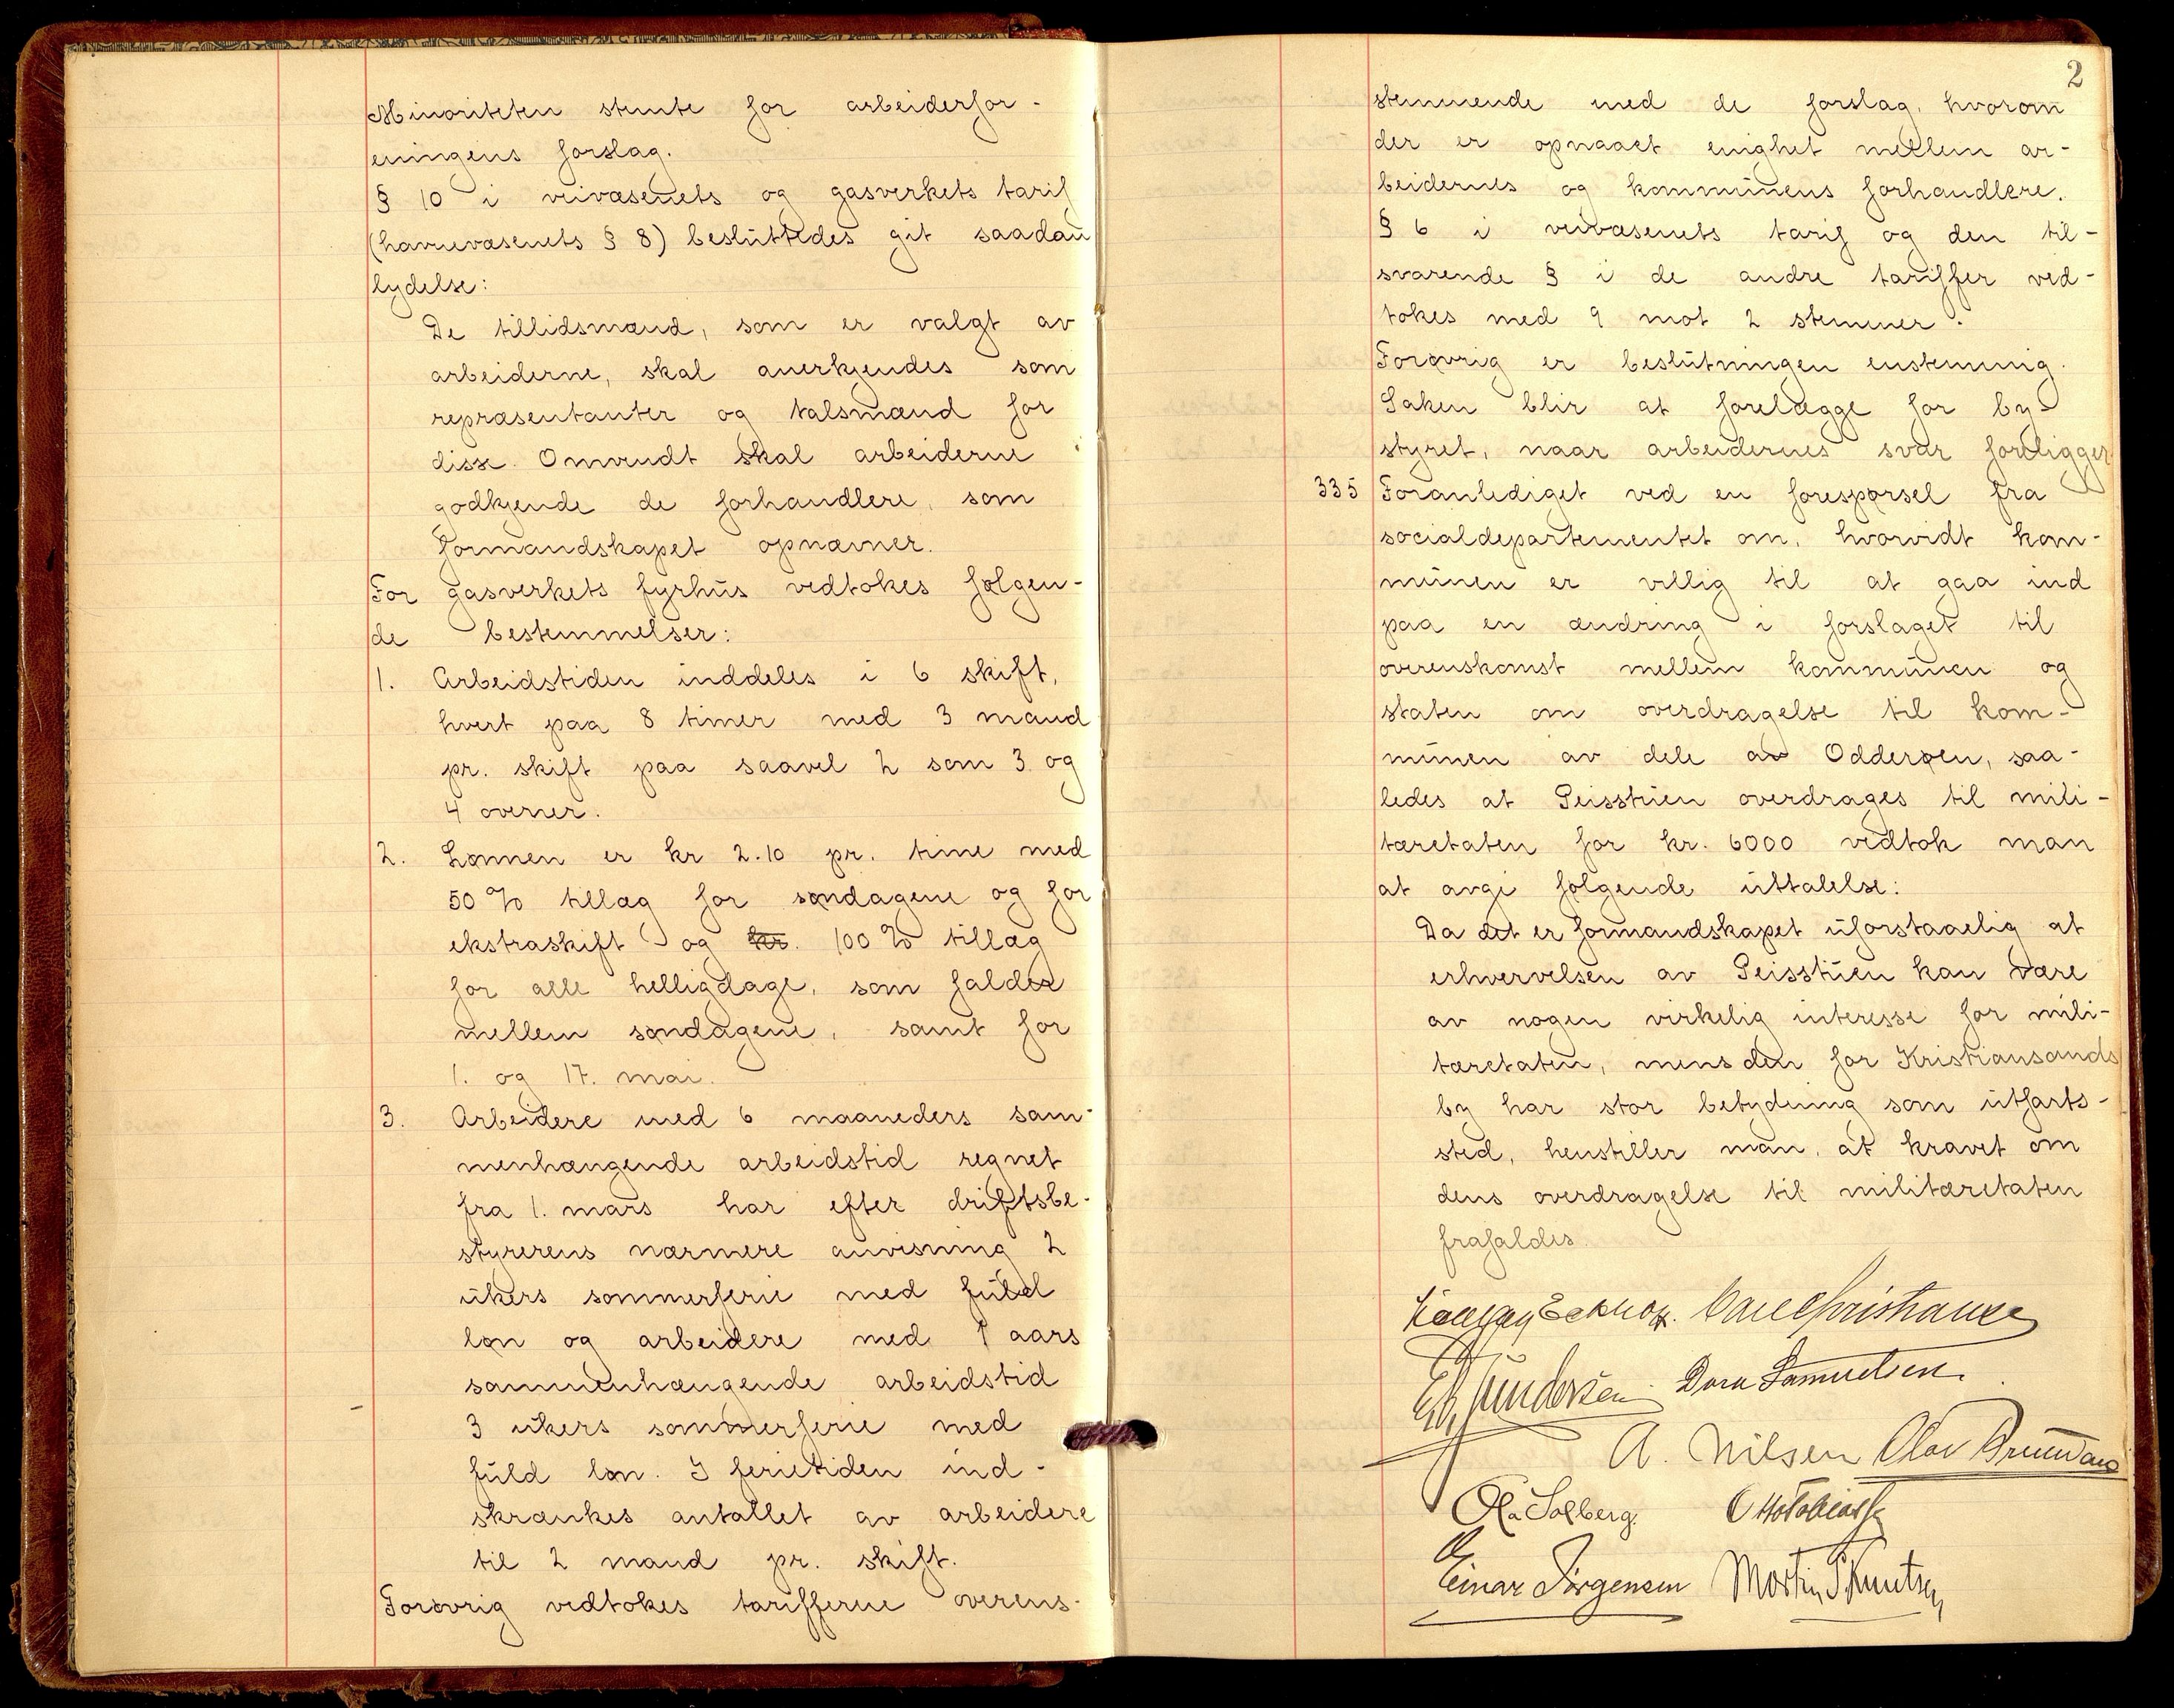 Minoriteten stemte for arbeiderfor-
eningens forslag.
§ 10 i veivæsenets og gasverkets tarif
(havnevæsenets § 8) besluttedes git saadan
lydelse:
De tillidsmænd, som er valgt av
arbeiderne, skal anerkjendes som
repræsentanter og talsmænd for
disse. Omvendt skal arbeiderne
godkjende de forhandlere, som
formandskapet opnævner.
For gasverkets fyrhus vedtokes følgen-
de bestemmelser:
1. Arbeidstiden inddeles i 6 skift,
hvert paa 8 timer med 3 mand
pr. skift paa saavel 2 som 3 og
4 ovener.
2. Lønnen er kr 2.10 pr. time med
50 % tillæg for søndagene og for
ekstraskift og kr. 100 % tillæg
for alle helligdage, som falder
mellem søndagene, samt for
1. og 17. mai.
3. Arbeidere med 6 maaneders sam-
menhængende arbeidstid regnet
fra 1. mars har efter driftsbe-
styrerens nærmere anvisning 2
ukers sommerferie med fuld
løn og arbeidere med 1 aars
sammenhængende arbeidstid
3 ukers sommerferie med
fuld løn. I ferietiden ind-
skrænkes antallet av arbeidere
til 2 mand pr. skift.
Forøvrig vedtokes tarifferne overens-
2
stemmende med de forslag, hvorom
der er opnaaet enighet mellem ar-
beidernes og kommunens forhandlere.
§ 6 i veivæsenets tarif og den til-
svarende § i de andre tariffer ved-
tokes med 9 mot 2 stemmer.
Forøvrig er beslutningen enstemmig.
Saken blir at forelægge for by-
styret, naar arbeidernes svar foreligger
335 Foranlediget ved en forespørsel fra
socialdepartementet om, hvorvidt kom-
munen er villig til at gaa ind
paa en ændring i forslaget til
overenskomst mellem kommunen og
staten om overdragelse til kom-
munen av dele av Odderøen, saa-
ledes at Peisstuen overdrages til mili-
tæretaten for kr. 6000 vedtok man
at avgi følgende uttalelse:
Da det er formandskapet uforstaaelig at
erhvervelsen av Peisstuen kan være
av nogen virkelig interesse for mili-
tæretaten, mens den for Kristiansands
by har stor betydning som utfarts-
sted, henstiller man, at kravet om
dens overdragelse til militæretaten
frafaldes.
Carl Christiansen
Gundersen Dora Samuelsen.
A. Nilsen Olav
Ola Solberg. Otto Tobiassen
Einar Jørgensen Martin Knutsen